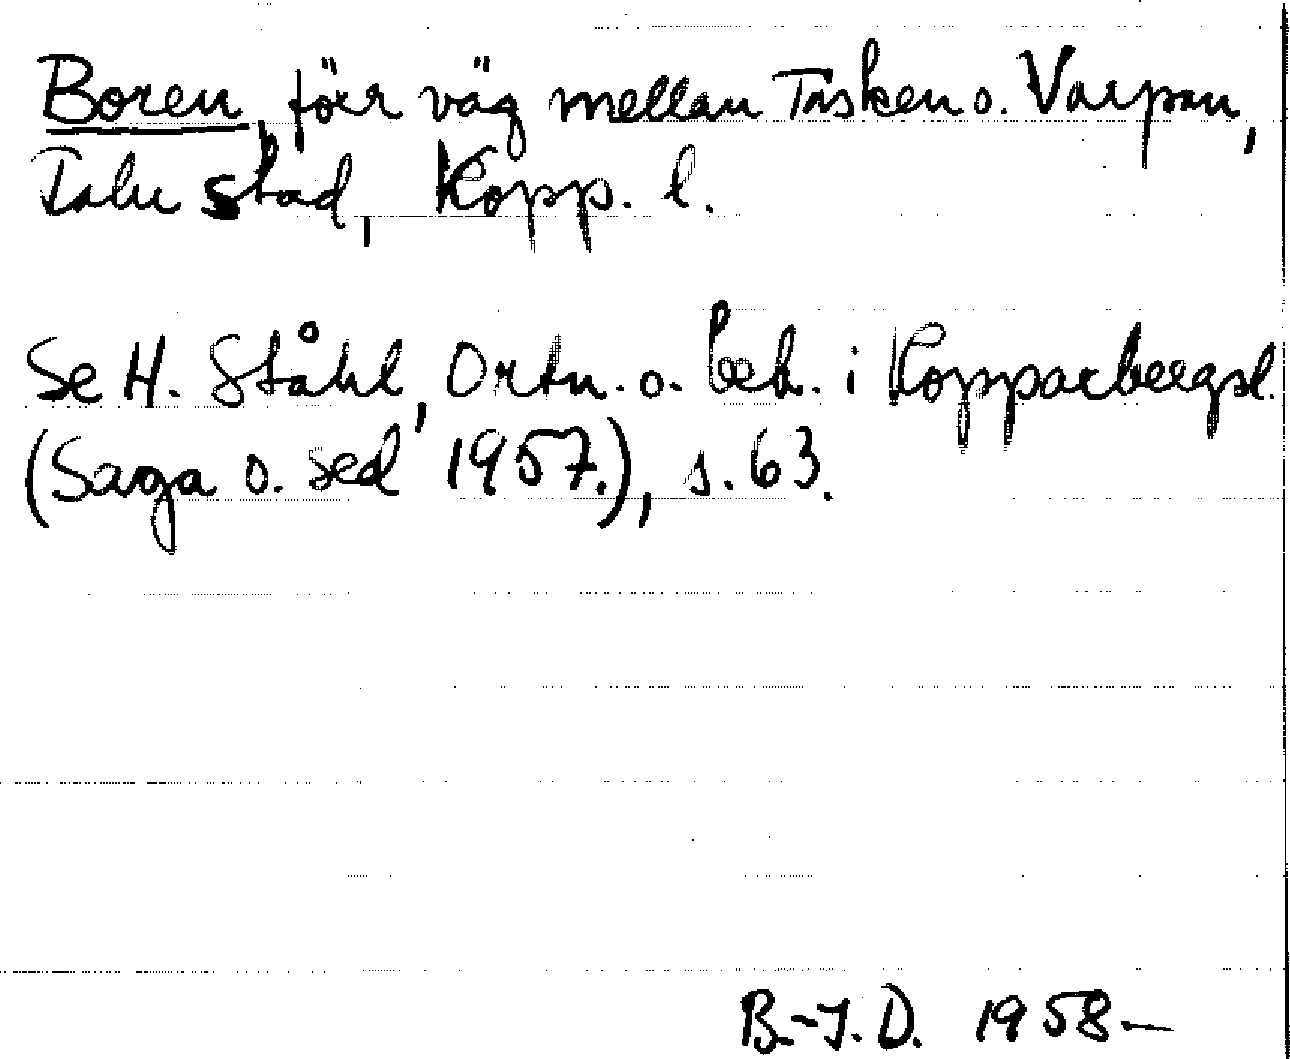 Boren, förr väg mellan Tisken o. Varpan,
Falu stad, Kopp. l.
Se H. Ståhl, Ortn. o. beb. i Kopparbergsl.
(Saga o. sed 1957.), s. 63.
B.-I. D. 1958—